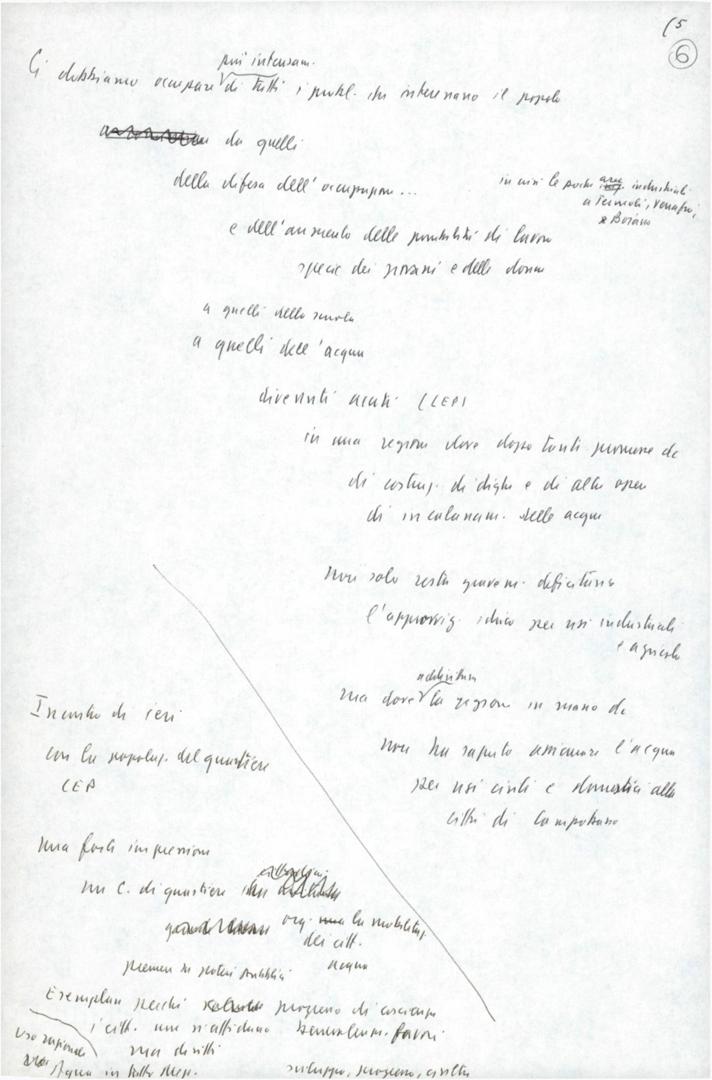 15
6
più intensam.
Ci dobbiamo occupare di tutti i probl. che interessano il popolo
da quelli
della difesa dell'occupazione ...
in crisi le poche industriali
a Termoli, Venafro,
e Boiano
e dell'aumento delle possibilità di lavoro
specie dei giovani e delle donne
a quelli della scuola
a quelli dell'acqua
diventati acuti (CEP)
in una regione dove dopo tanti promesse dc
di costruz. di dighe e di altre opere
di incalanam. delle acque
non solo resta gravem. deficitario
l'approvvig. idrico per usi industriali
e agricoli
addirittura
ma dove la regione in mano dc
non ha saputo assicurare l'acqua
per usi civili e domestici alla
città di Campobasso
Incontro di ieri
con la popolaz. del quartiere
CEP
una forte impressione
un C. di quartiere
org. la mobilitaz.
dei citt.
premere su poteri pubblici
acqua
Esemplare perché progresso di coscienza
i citt. non s'affidano favori
ma diritti
uso razionale
Acqua in tutto
sviluppo, progresso, civiltà